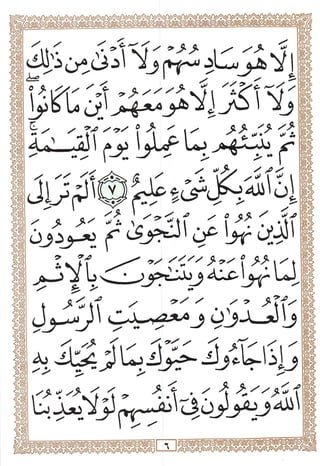 إِلَّا هُوَ سَادِسُهُمْ وَلَآ أَدْنَىٰ مِن ذَٰلِكَ
وَلَآ أَكْثَرَ إِلَّا هُوَ مَعَهُمْ أَيْنَ مَا كَانُوا۟ۖ
ثُمَّ يُنَبِّئُهُم بِمَا عَمِلُوا۟ يَوْمَ ٱلْقِيَـٰمَةِۚ
إِنَّ ٱللَّهَ بِكُلِّ شَىْءٍ عَلِيمٌ ٧ أَلَمْ تَرَ إِلَى
ٱلَّذِينَ نُهُوا۟ عَنِ ٱلنَّجْوَىٰ ثُمَّ يَعُودُونَ
لِمَا نُهُوا۟ عَنْهُ وَيَتَنَـٰجَوْنَ بِٱلْإِثْمِ
وَٱلْعُدْوَٰنِ وَمَعْصِيَتِ ٱلرَّسُولِ
وَإِذَا جَآءُوكَ حَيَّوْكَ بِمَا لَمْ يُحَيِّكَ بِهِ
ٱللَّهُ وَيَقُولُونَ فِىٓ أَنفُسِهِمْ لَوْلَا يُعَذِّبُنَا
٦